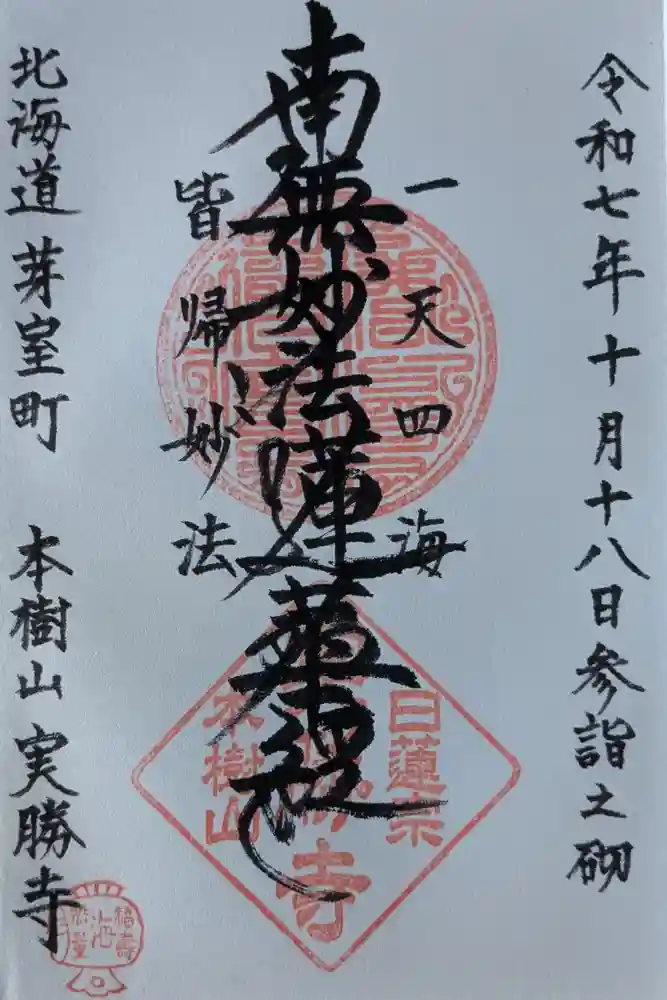 令和七年十月十八日参詣之砌
一天四海
南無妙法蓮華経
皆帰妙法
北海道 芽室町 本樹山 実勝寺
日蓮宗
本樹山
寺
福壽
海
無量